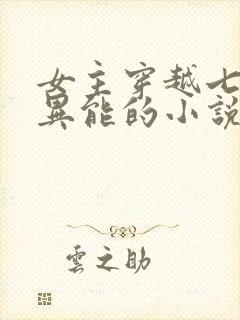 女主穿越七
異能的小說
雲之助